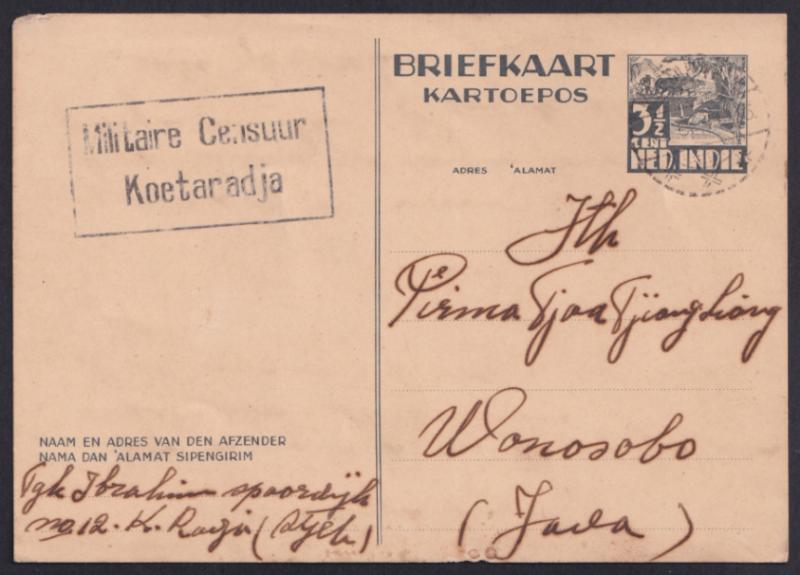 Militaire Censuur
Koetaradja
BRIEFKAART
KARTOEPOS
3½
CENT
NED. INDIE
ADRES 'ALAMAT
Jth
Pirma Tjoa Tjiang Liong
Wonosobo
(Java)
NAAM EN ADRES VAN DEN AFZENDER
NAMA DAN 'ALAMAT SIPENGIRIM
Tgk Ibrahim spoordijk
no 12. K. Radja (Atjeh)